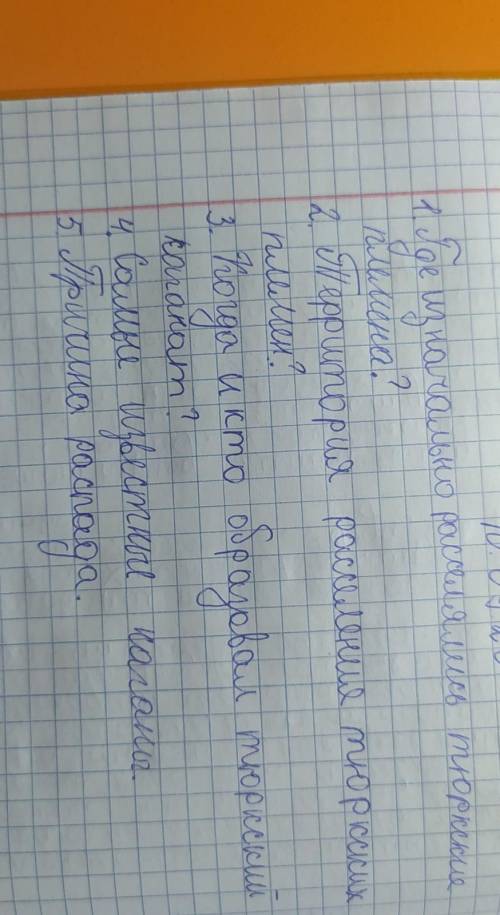 1. Где изначально расселялись тюркские
племена?
2. Территория расселения тюркских
племен?
3. Когда и кто образовал тюркский
каганат?
4. Самые известные каганы.
5. Причина распада.